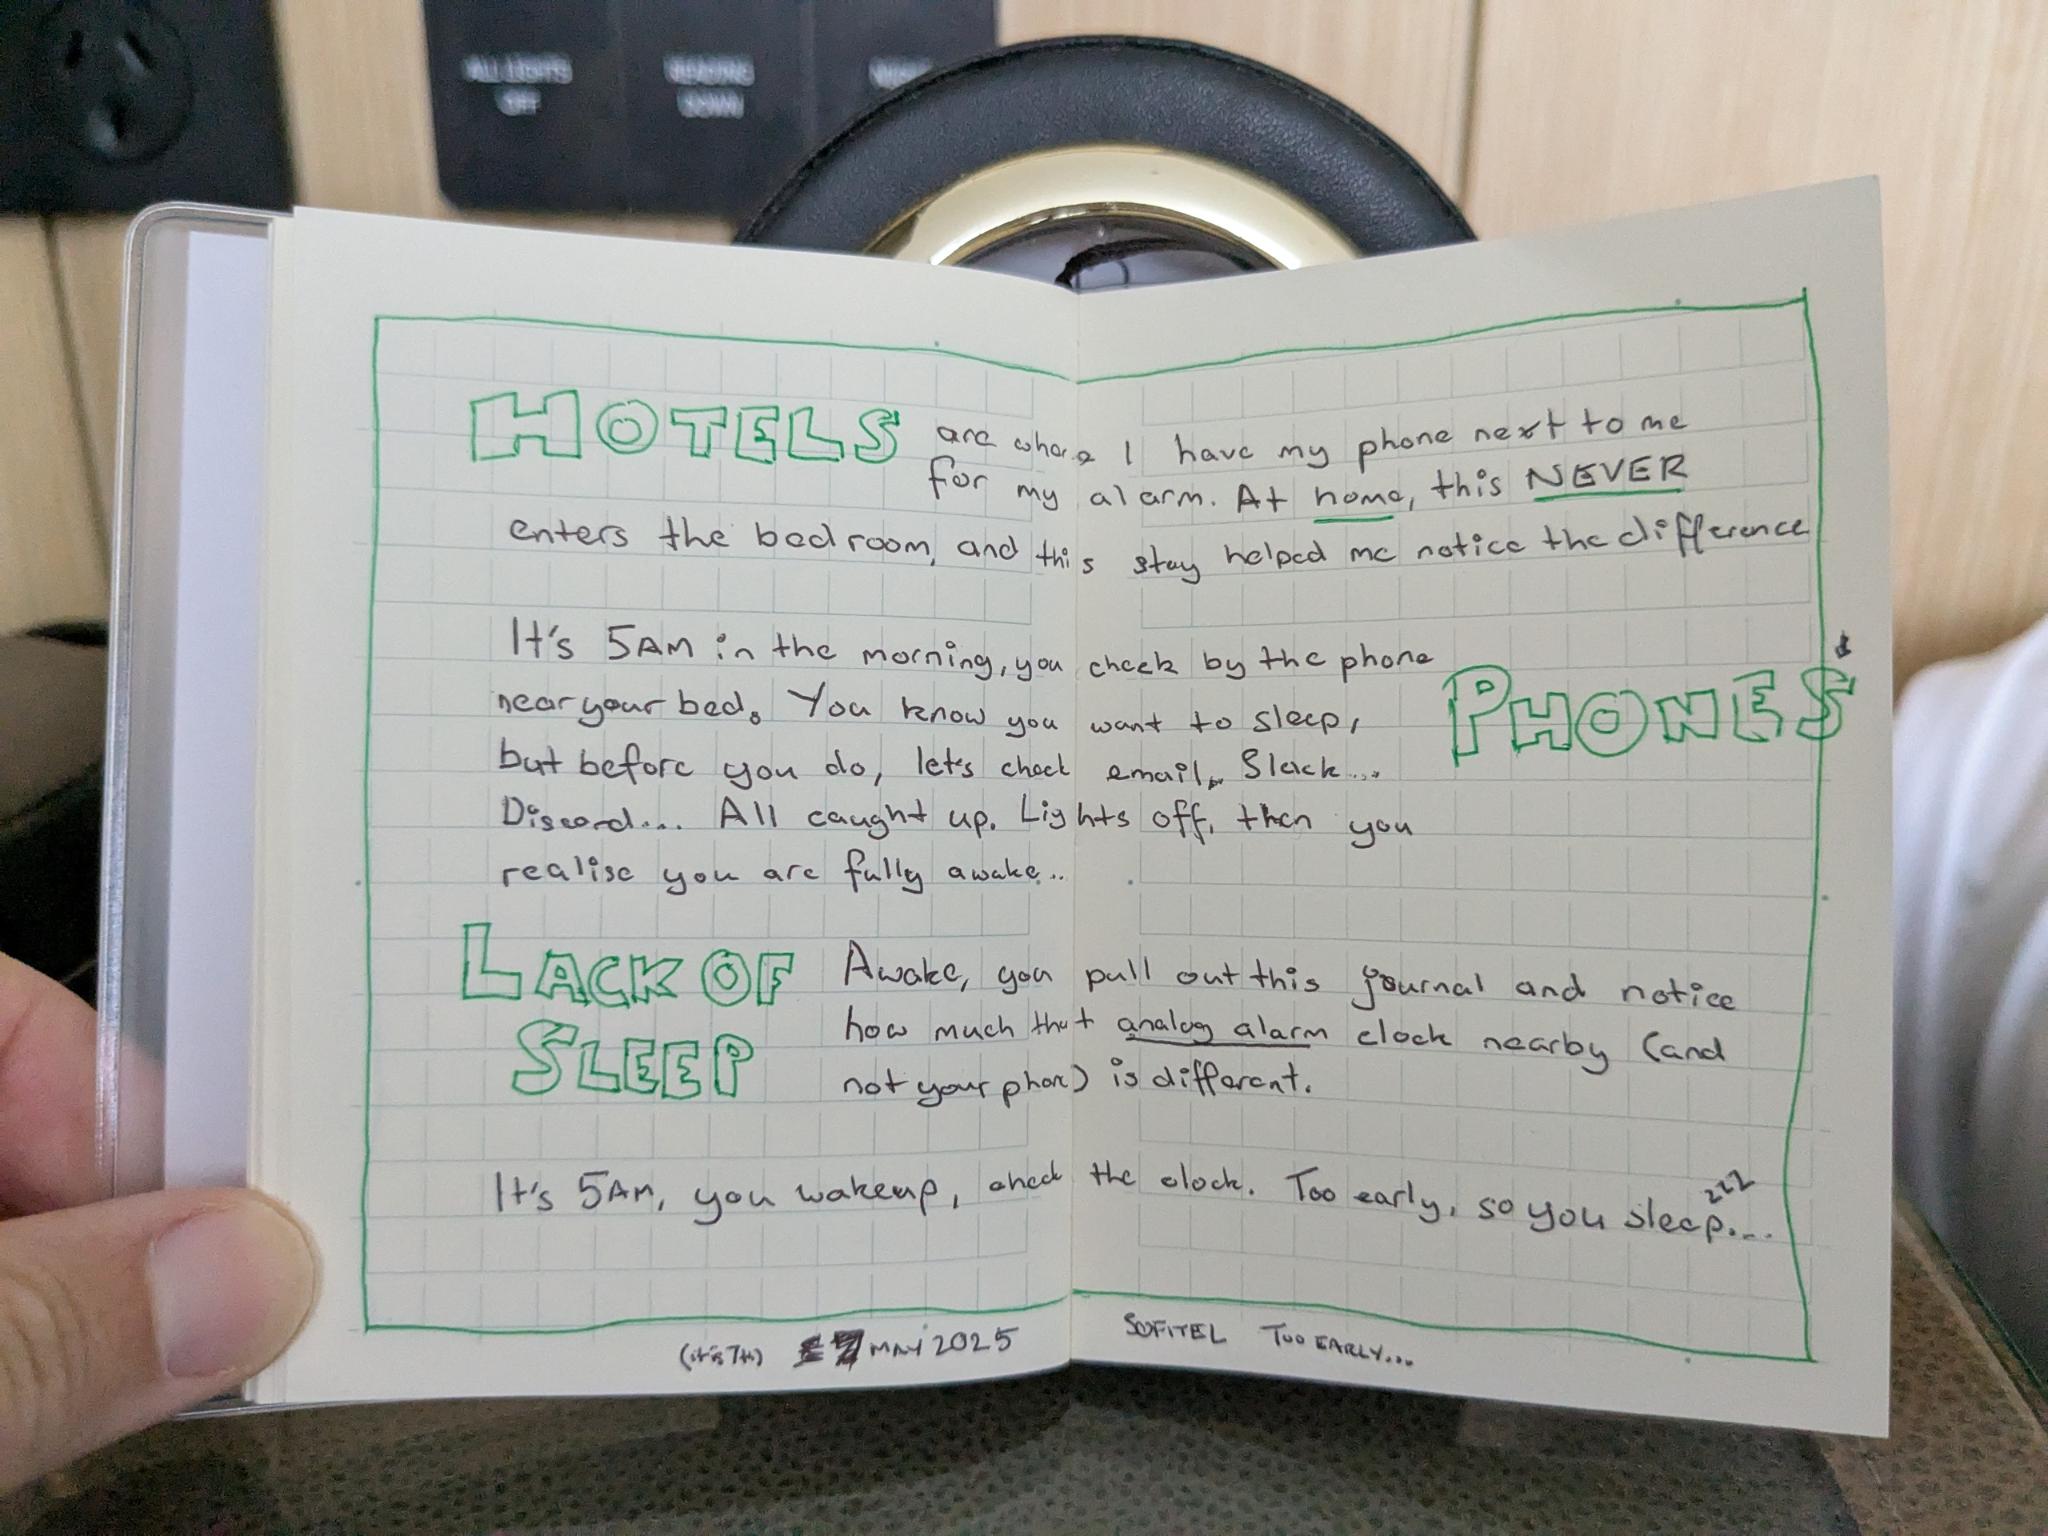 ALL LIGHTS
OFF
READING
DOWN
HOTELS are where I have my phone next to me
for my alarm. At home, this NEVER
enters the bedroom, and this stay helped me notice the difference
It's 5AM in the morning, you check by the phone
near your bed. You know you want to sleep,
PHONES
but before you do, let's check email, Slack...
Discord.... All caught up. Lights off, then you
realise you are fully awake...
LACK OF
SLEEP
Awake, you pull out this journal and notice
how much that analog alarm clock nearby (and
not your phone) is different.
It's 5AM, you wakeup, check the clock. Too early, so you sleep....
zzz
(it is 7th) 7 MAY 2025
SOFITEL TOO EARLY...